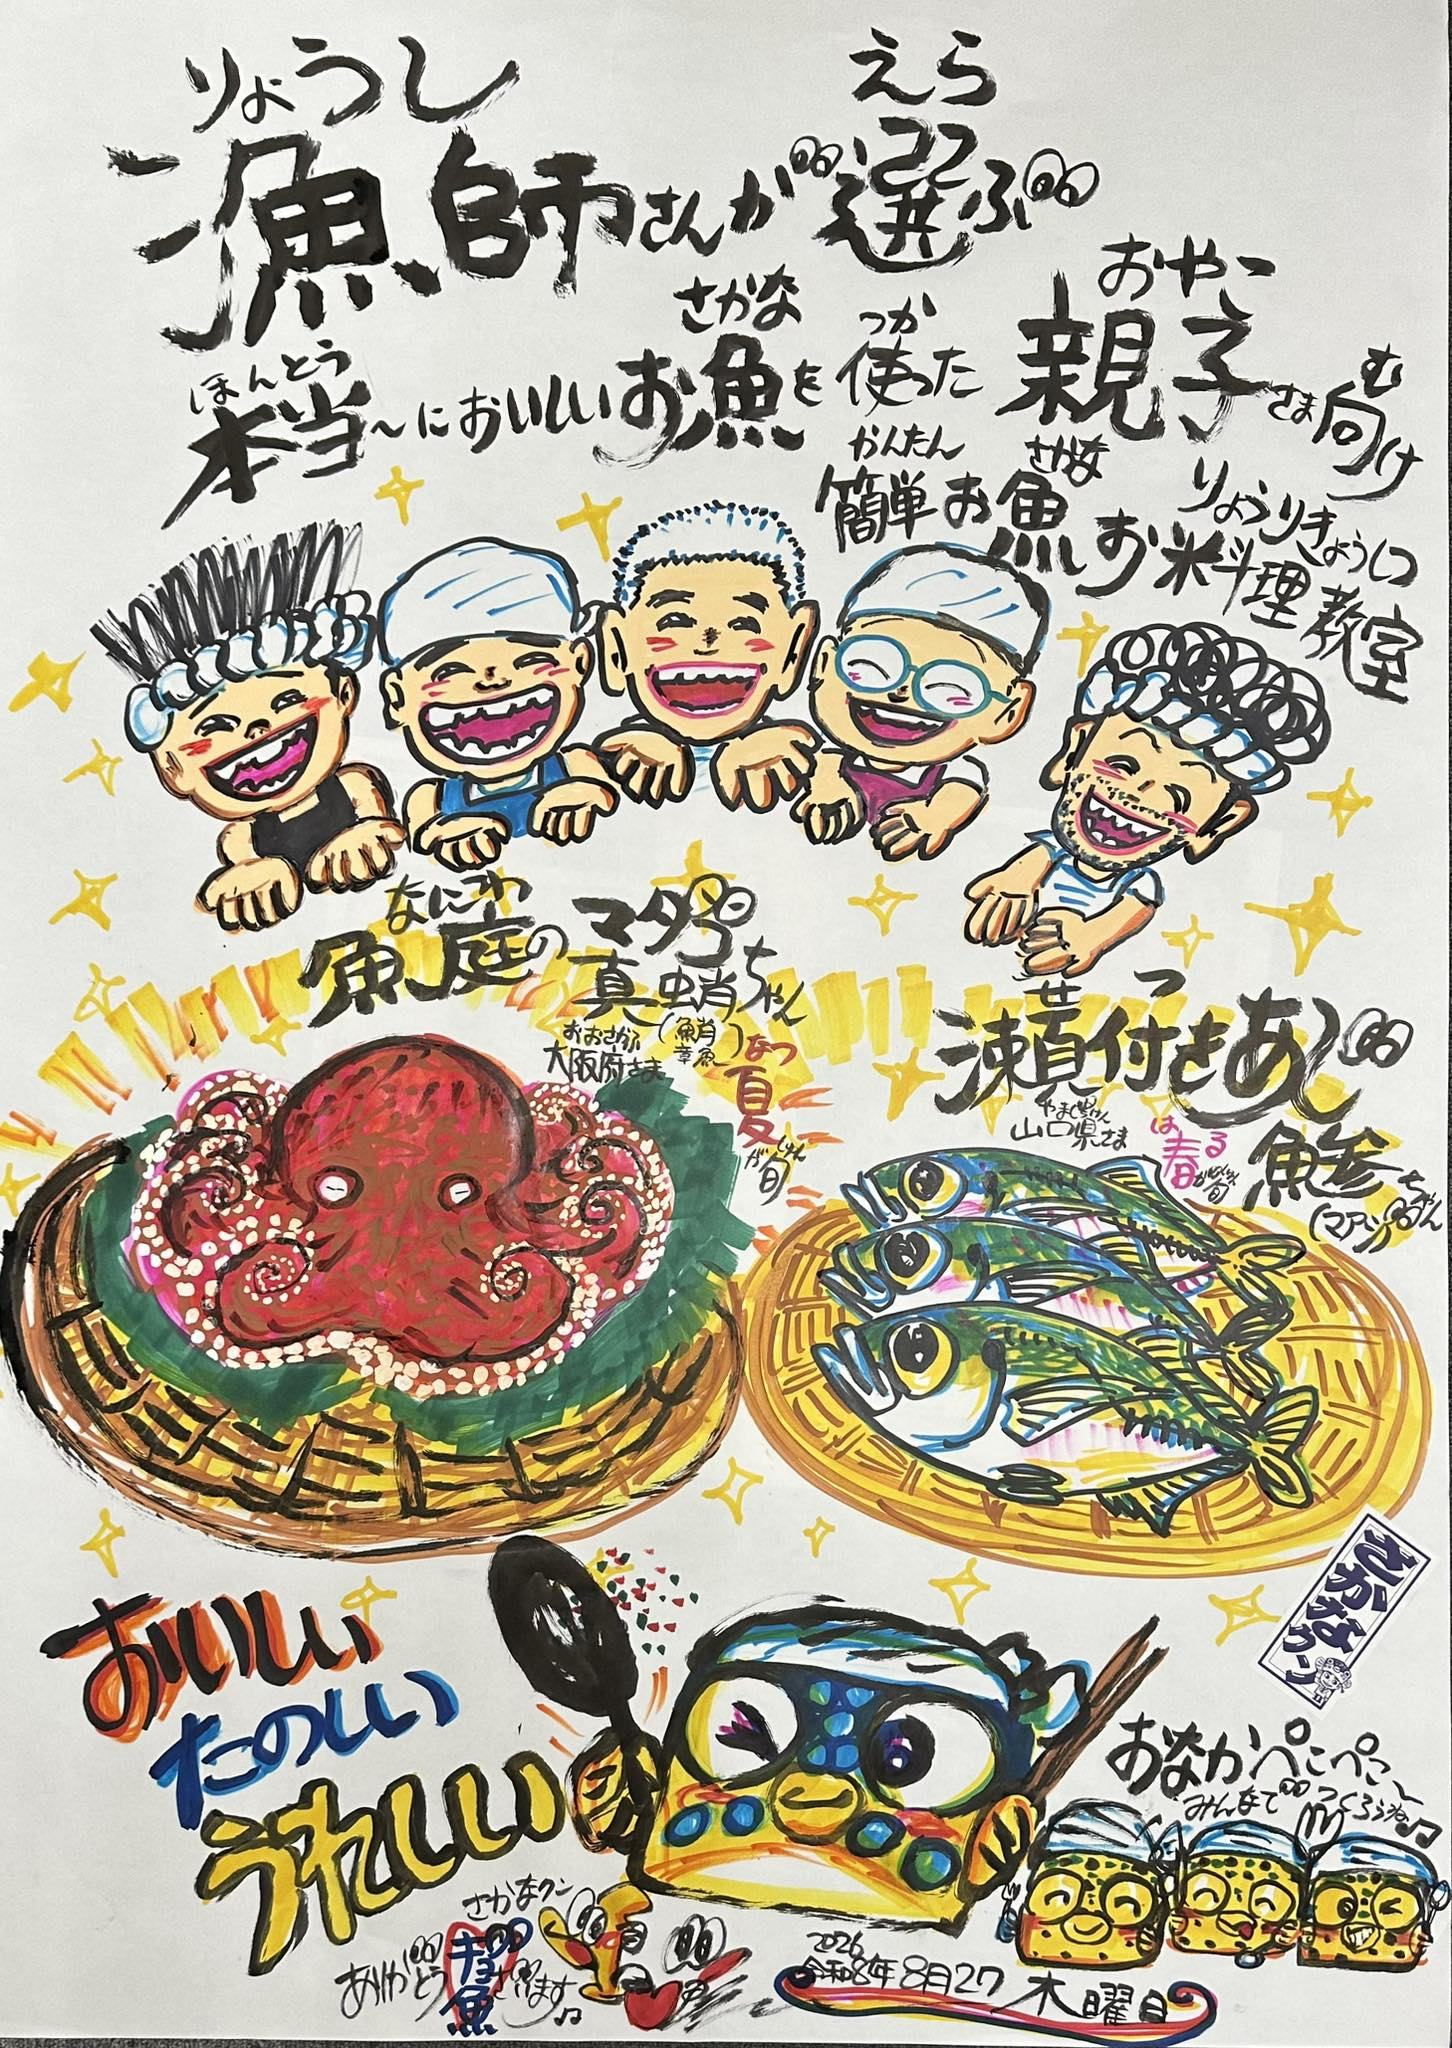 りょうし
漁師さんが
えら
選ぶ
ほんとう
本当〜においしい
さかな
お魚を
つか
使った
おやこ
親子さま
む
向け
かんたん
簡単
さかな
お魚
りょうりきょうしつ
お料理教室
なにわ
魚庭の
マダコ
真蛸ちゃん
(鮹
章魚)
おおさかふ
大阪府さま
なつ
夏が
しゅん
旬
せつ
瀬付きあじ
鯵ちゃん
(マアジ)
やまぐちけん
山口県さま
はる
春が
しゅん
旬
おいしい
たのしい
うれしい
さかなクン
おなかペこペこ〜
みんなでつくろうね♪♫
さかなクン
ありがとう
ギョ
魚
ざいます♫
2026
令和8年8月27
木曜日